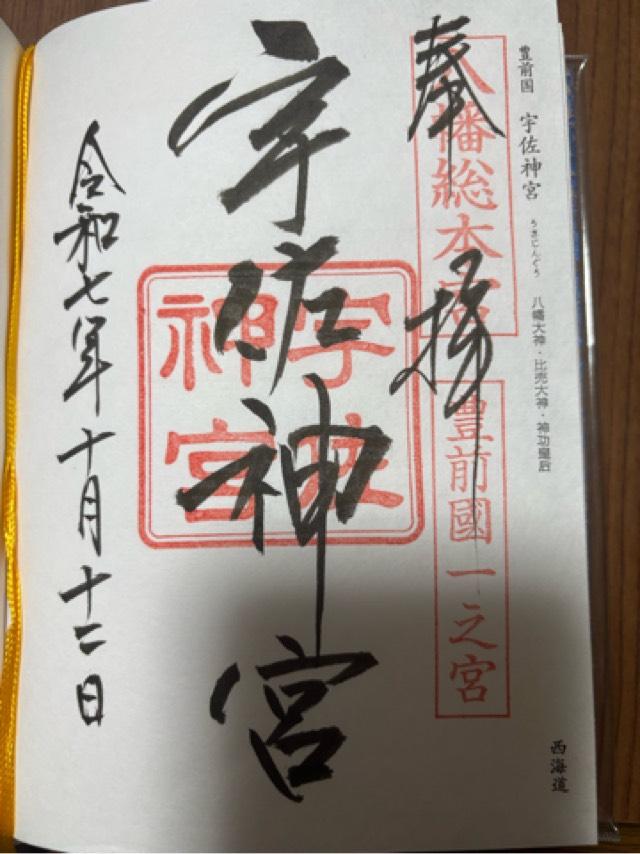 豊前国 宇佐神宮 うさじんぐう 八幡大神・比売大神・神功皇后
西海道
奉拝
八幡総本宮
豊前國一之宮
宇佐神宮
宇佐神宮
令和七年十月十二日